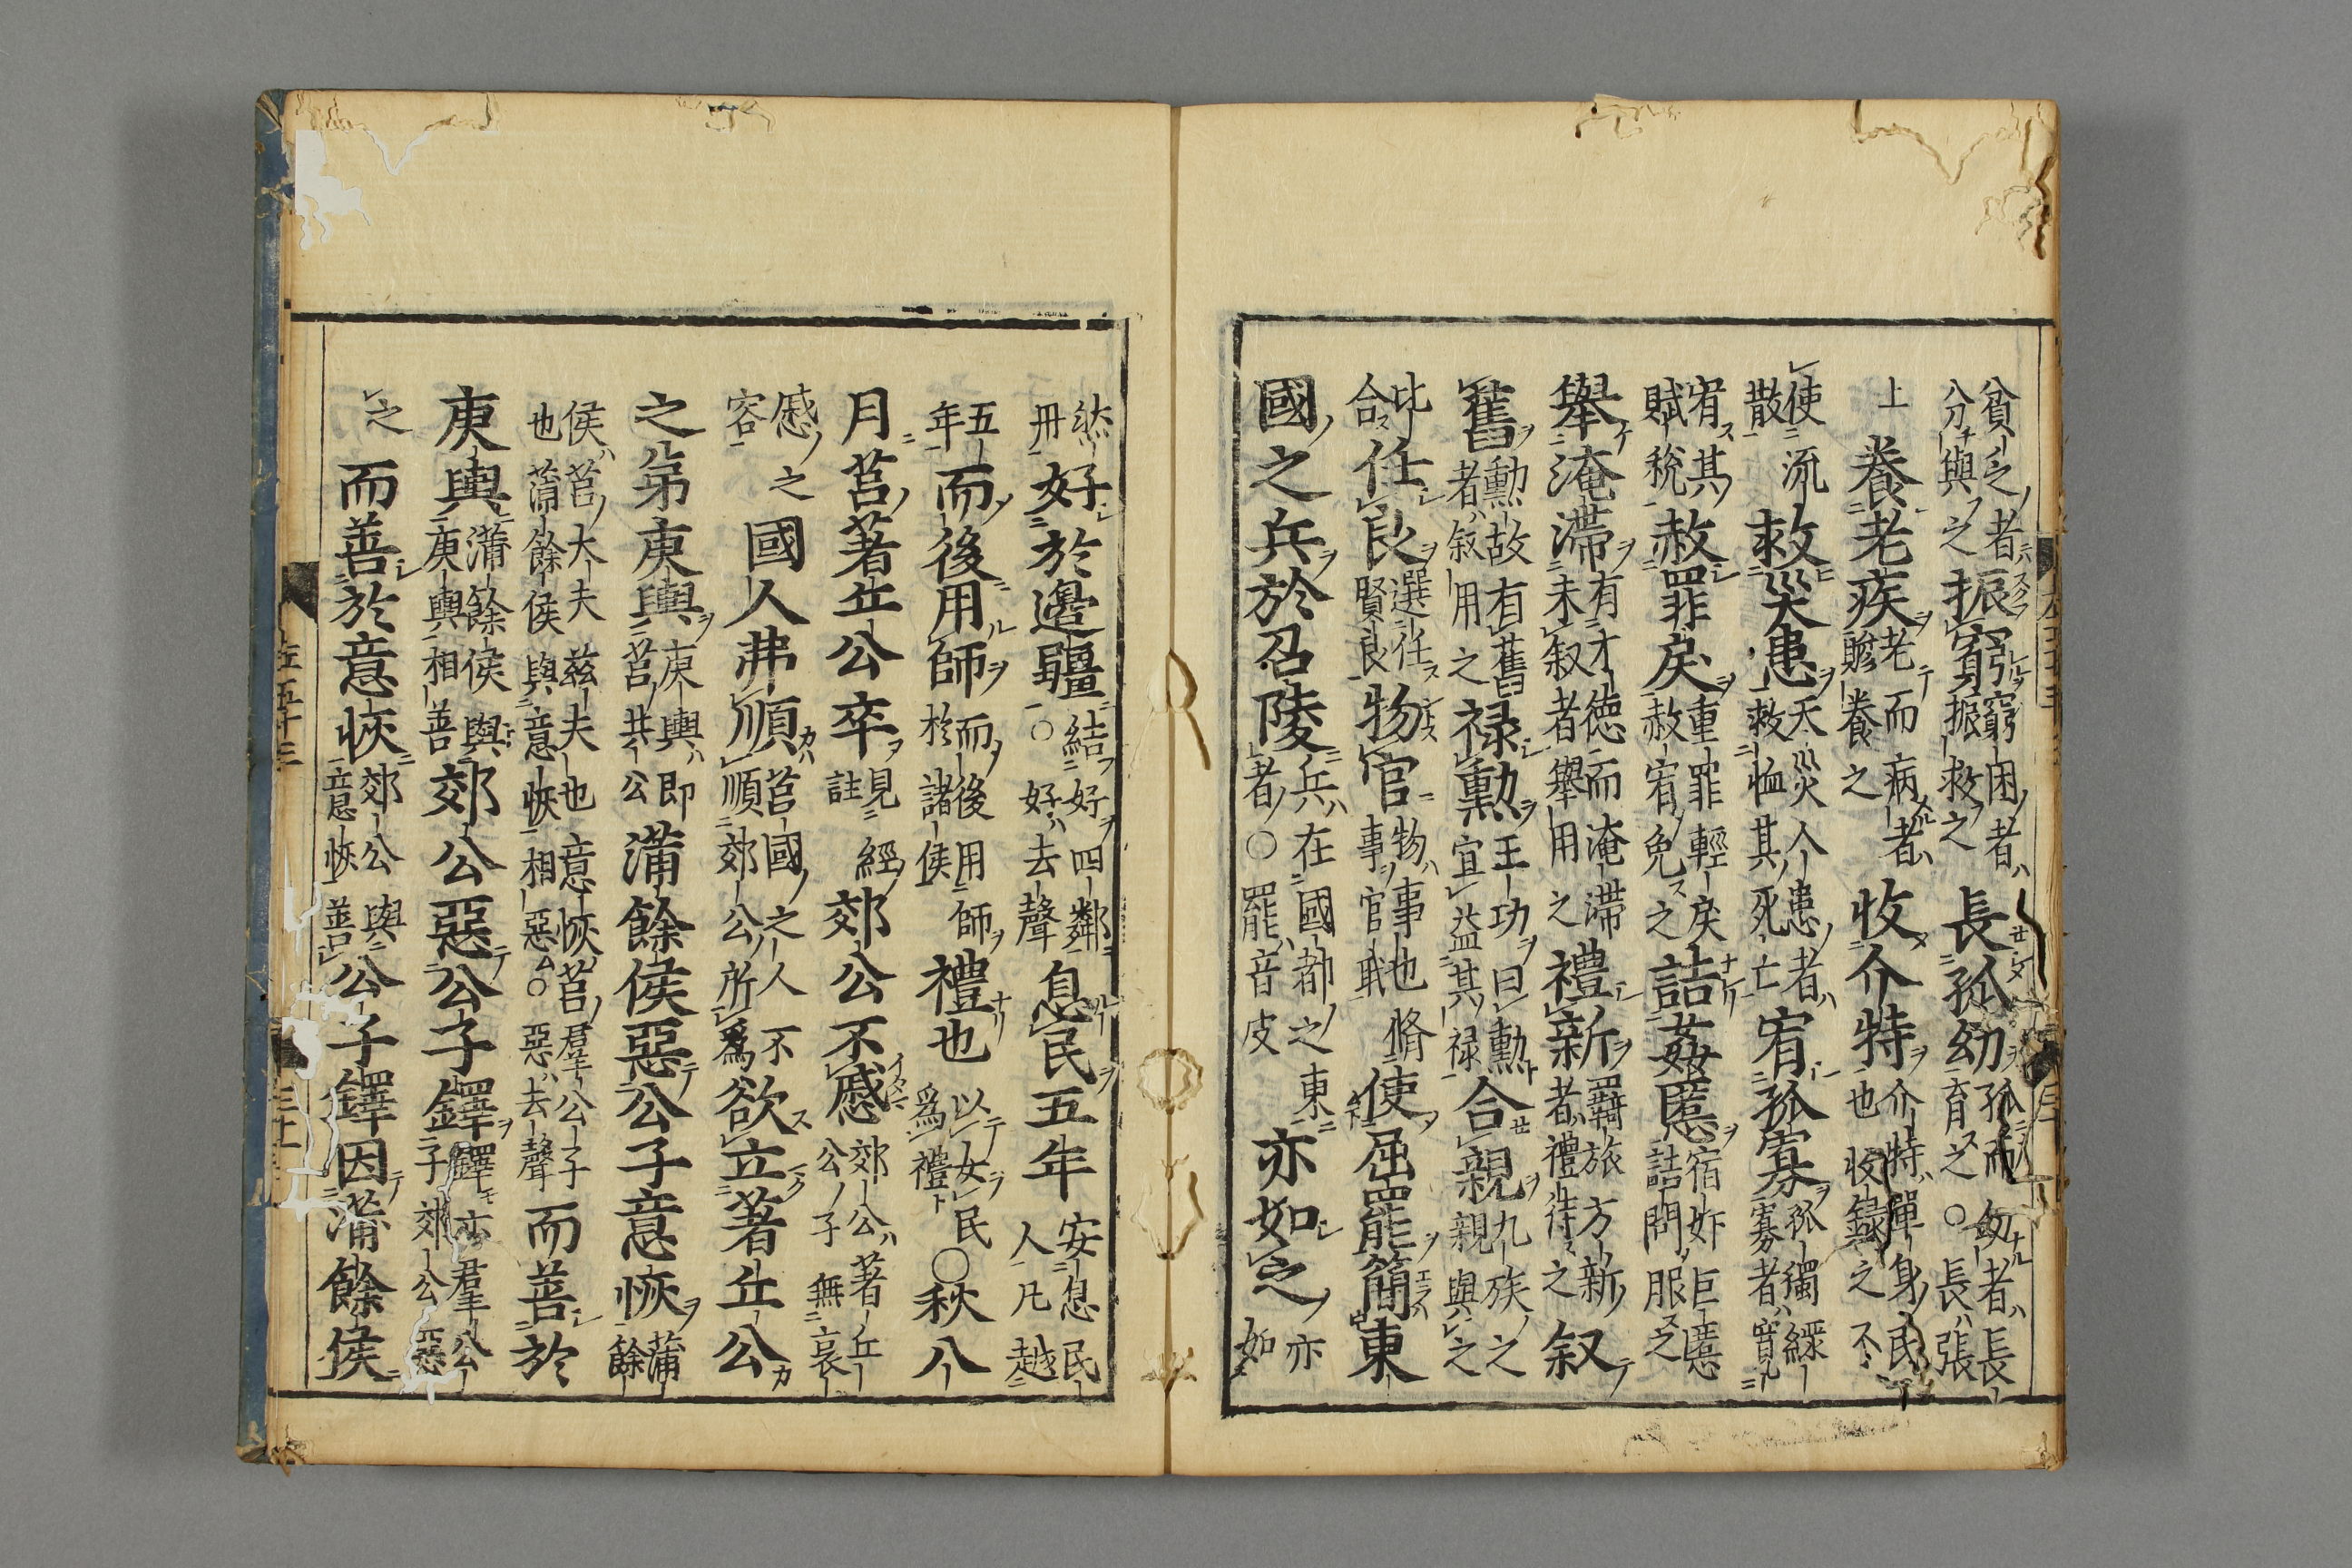 貧乏者分與之振窮窮困者振救之長孤幼孤而幼者長育之○長張
上養老疾老而病者贍養之收介特介特單身民也收錄之不
使流散救災患天災人患者救恤其死亡宥孤寡孤獨鰥寡者寬
宥其賦稅赦罪戾重罪輕戾赦宥免之詰姦慝宿奸巨慝詰問服之
舉淹滯有才德而淹滯未叙者舉用之禮新羈旅方新者禮待之叙
舊勳故有舊者叙用之祿勳王功曰勳宜益其祿合親九族之親與之
比合任良選任賢良物官物事也事官職脩使屈罷簡東
國之兵於召陵兵在國都之東者○罷音皮亦如之亦如
然丹好於邊疆結好四鄰○好去聲息民五年安息民人凡越
五年而後用師而後用師於諸侯禮也以安民爲禮○秋八
月莒著丘公卒見經註郊公不慼郊公著丘公子無哀
慼之容國人弗順莒國之人不順郊公所爲欲立著丘公
之弟庚輿庚輿即莒共公蒲餘侯惡公子意恢蒲餘
侯莒大夫兹夫也意恢莒羣公子也蒲餘侯與意恢相惡○惡去聲而善於
庚輿蒲餘侯與庚輿相善郊公惡公子鐸鐸亦羣公子郊公惡
之而善於意恢郊公與意恢善公子鐸因蒲餘侯